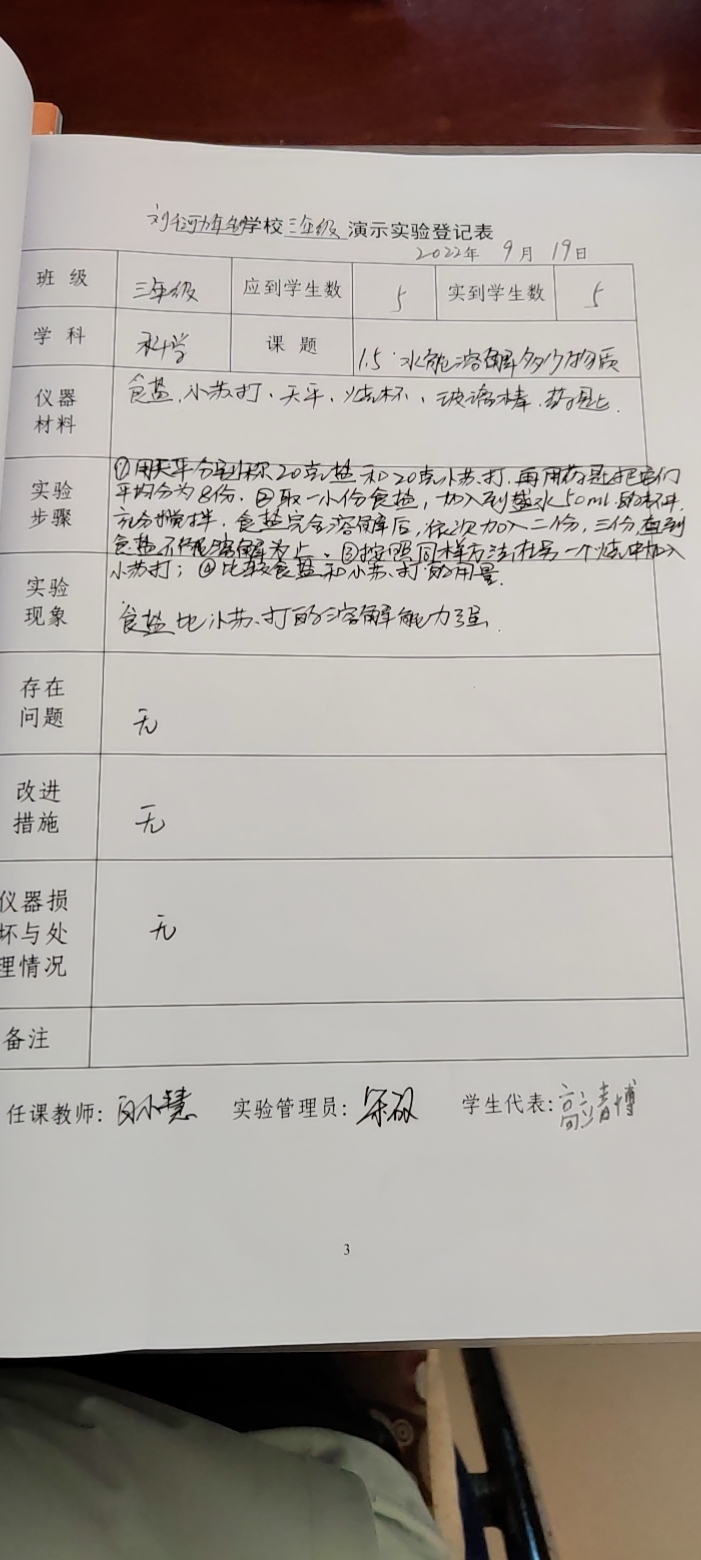 学校三年级演示实验登记表
2022年 9月 19日
班级 三年级 应到学生数 5 实到学生数 5
学科 科学 课题 1.5 水能溶解多少物质
仪器材料 食盐、小苏打、天平、烧杯、玻璃棒、药匙.
实验步骤 ①用天平分别称20克盐和20克小苏打.再用药匙把它们
平均分为8份.②取一小份食盐,加入到盛水50ml的杯中.
充分搅拌.食盐完全溶解后,依次加入二份,三份直到
食盐不能溶解为止.③按照同样方法在另一个烧中加入
小苏打;④比较食盐和小苏打的用量.
实验现象 食盐比小苏打的溶解能力强.
存在问题 无
改进措施 无
仪器损坏与处理情况 无
备注
任课教师: 实验管理员: 学生代表:高靖博
3